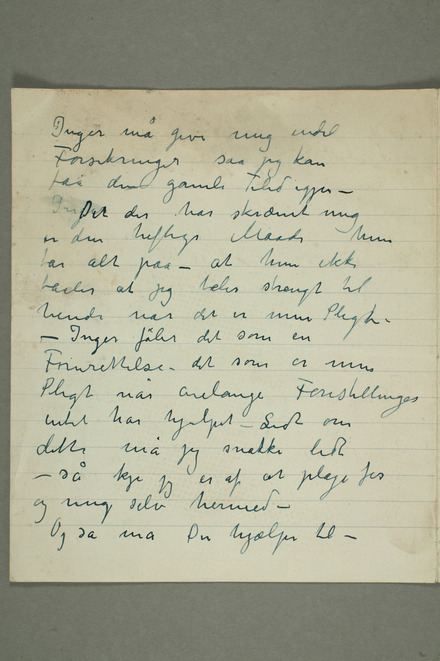 Inger må give mig endel
Forsikringer saa jeg kan
faa den gamle Tillid igjen —
Det der har skræmt mig
er den heftige Maade hun
tar alt paa — at hun ikke
taaler at jeg taler strengt til
hende når det er min Pligt. —
— Inger føler det som en
Fornærmelse — det som er min
Pligt når årelange Forestillinger
intet har hjulpet — Lidt om
dette må jeg snakke lidt
— så kje jeg er af at plage
og mig selv hermed —
Og så må De hjælpe til —